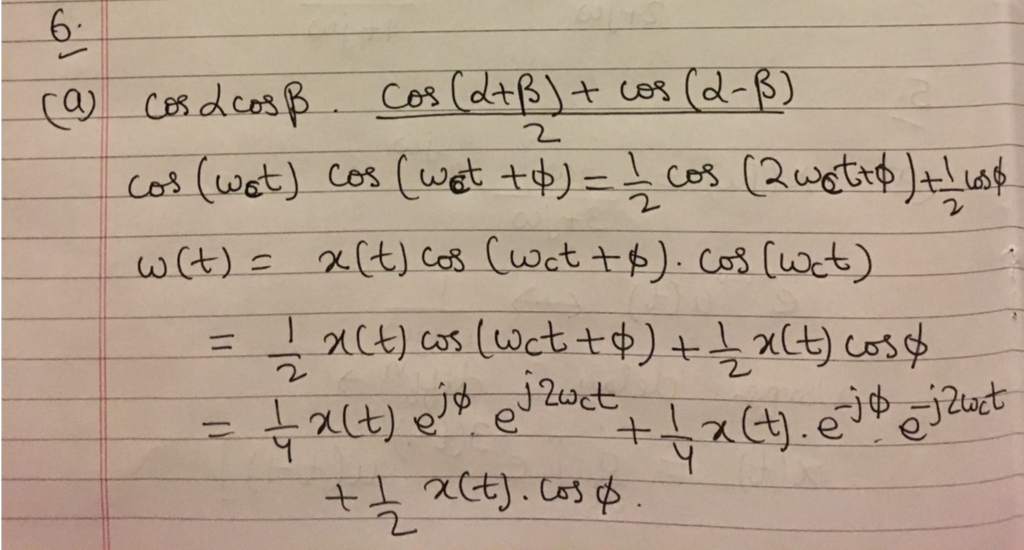 6.
(a) cos α cos β . (cos (α+β) + cos (α-β))/2
cos (ωct) cos (ωct + ϕ) = 1/2 cos (2ωct+ϕ) + 1/2 cosϕ
w(t) = x(t) cos (ωct + ϕ). cos (ωct)
= 1/2 x(t) cos (ωct + ϕ) + 1/2 x(t) cosϕ
= 1/4 x(t) e^{jϕ} . e^{j2ωct} + 1/4 x(t). e^{-jϕ} . e^{-j2ωct}
+ 1/2 x(t). cos ϕ.